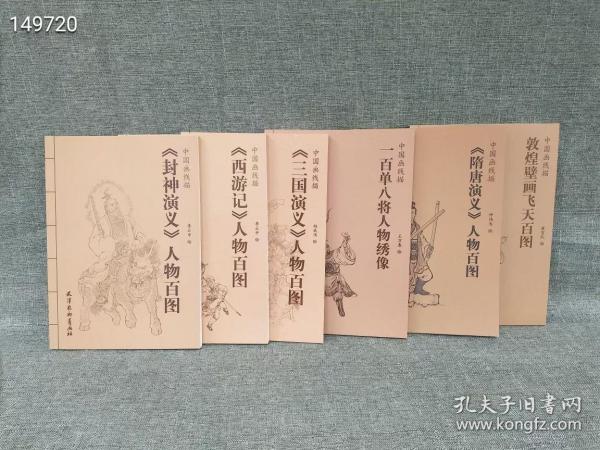 149720
中国画线描
《封神演义》人物百图
天津杨柳青画社
中国画线描
《西游记》人物百图
中国画线描
《三国演义》人物百图
中国画线描
一百单八将人物绣像
中国画线描
《隋唐演义》人物百图
中国画线描
敦煌壁画飞天百图
孔夫子旧书网
www.kongfz.com